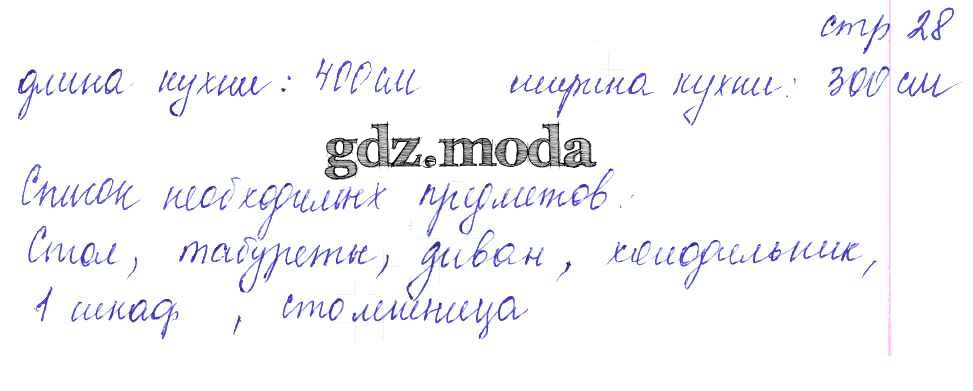 стр 28
длина кухни: 400см ширина кухни: 300см
gdz.moda
Список необходимых предметов:
Стол, табуреты, диван, холодильник,
1 шкаф, столешница